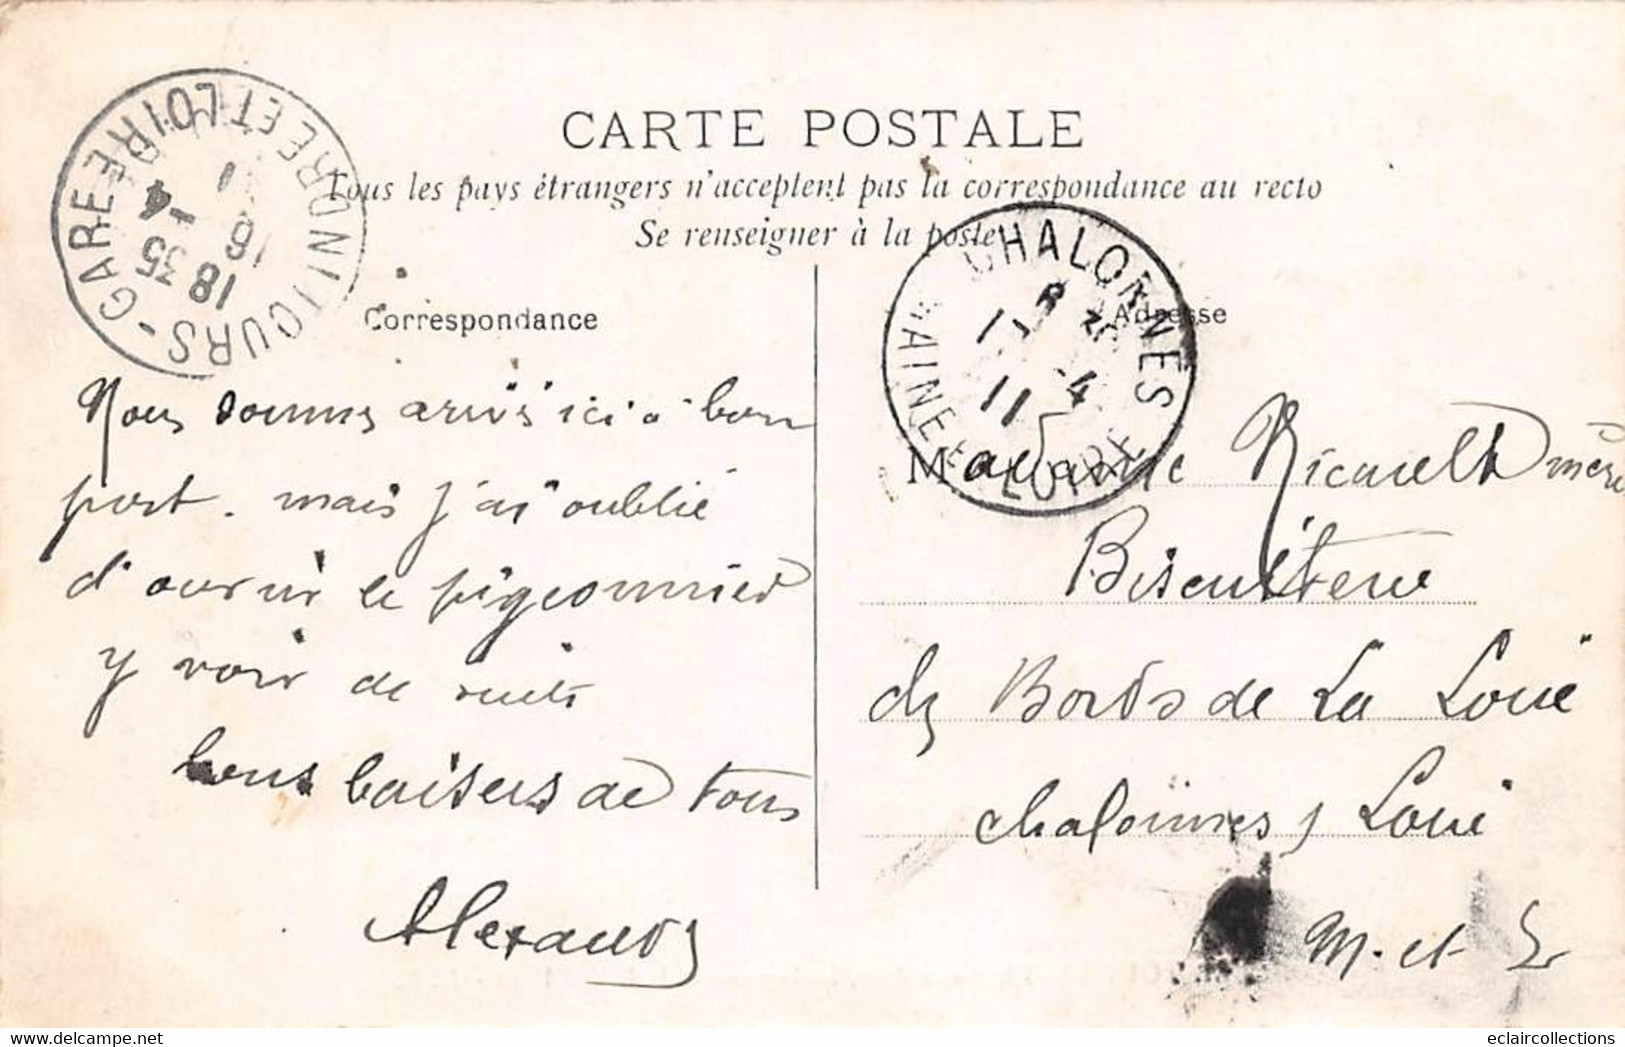 CARTE POSTALE
Tous les pays étrangers n'acceptent pas la correspondance au recto
Se renseigner à la poste
TOURS-GARE INDRE ET LOIRE
18 35
16 -4
11
CHALONNES
MAINE & LOIRE
-4
11
Correspondance
Adresse
Nous sommes arivés ici à bon
port. mais j'ai oublié
d'ouvrir le pigeonnier
y voir de suite
bons baisers de tous
Alexandre
Madame Ricault mère
Biscuiterie
des Bords de La Loire
chalonnes s Loire
M. et L
eclaircollections